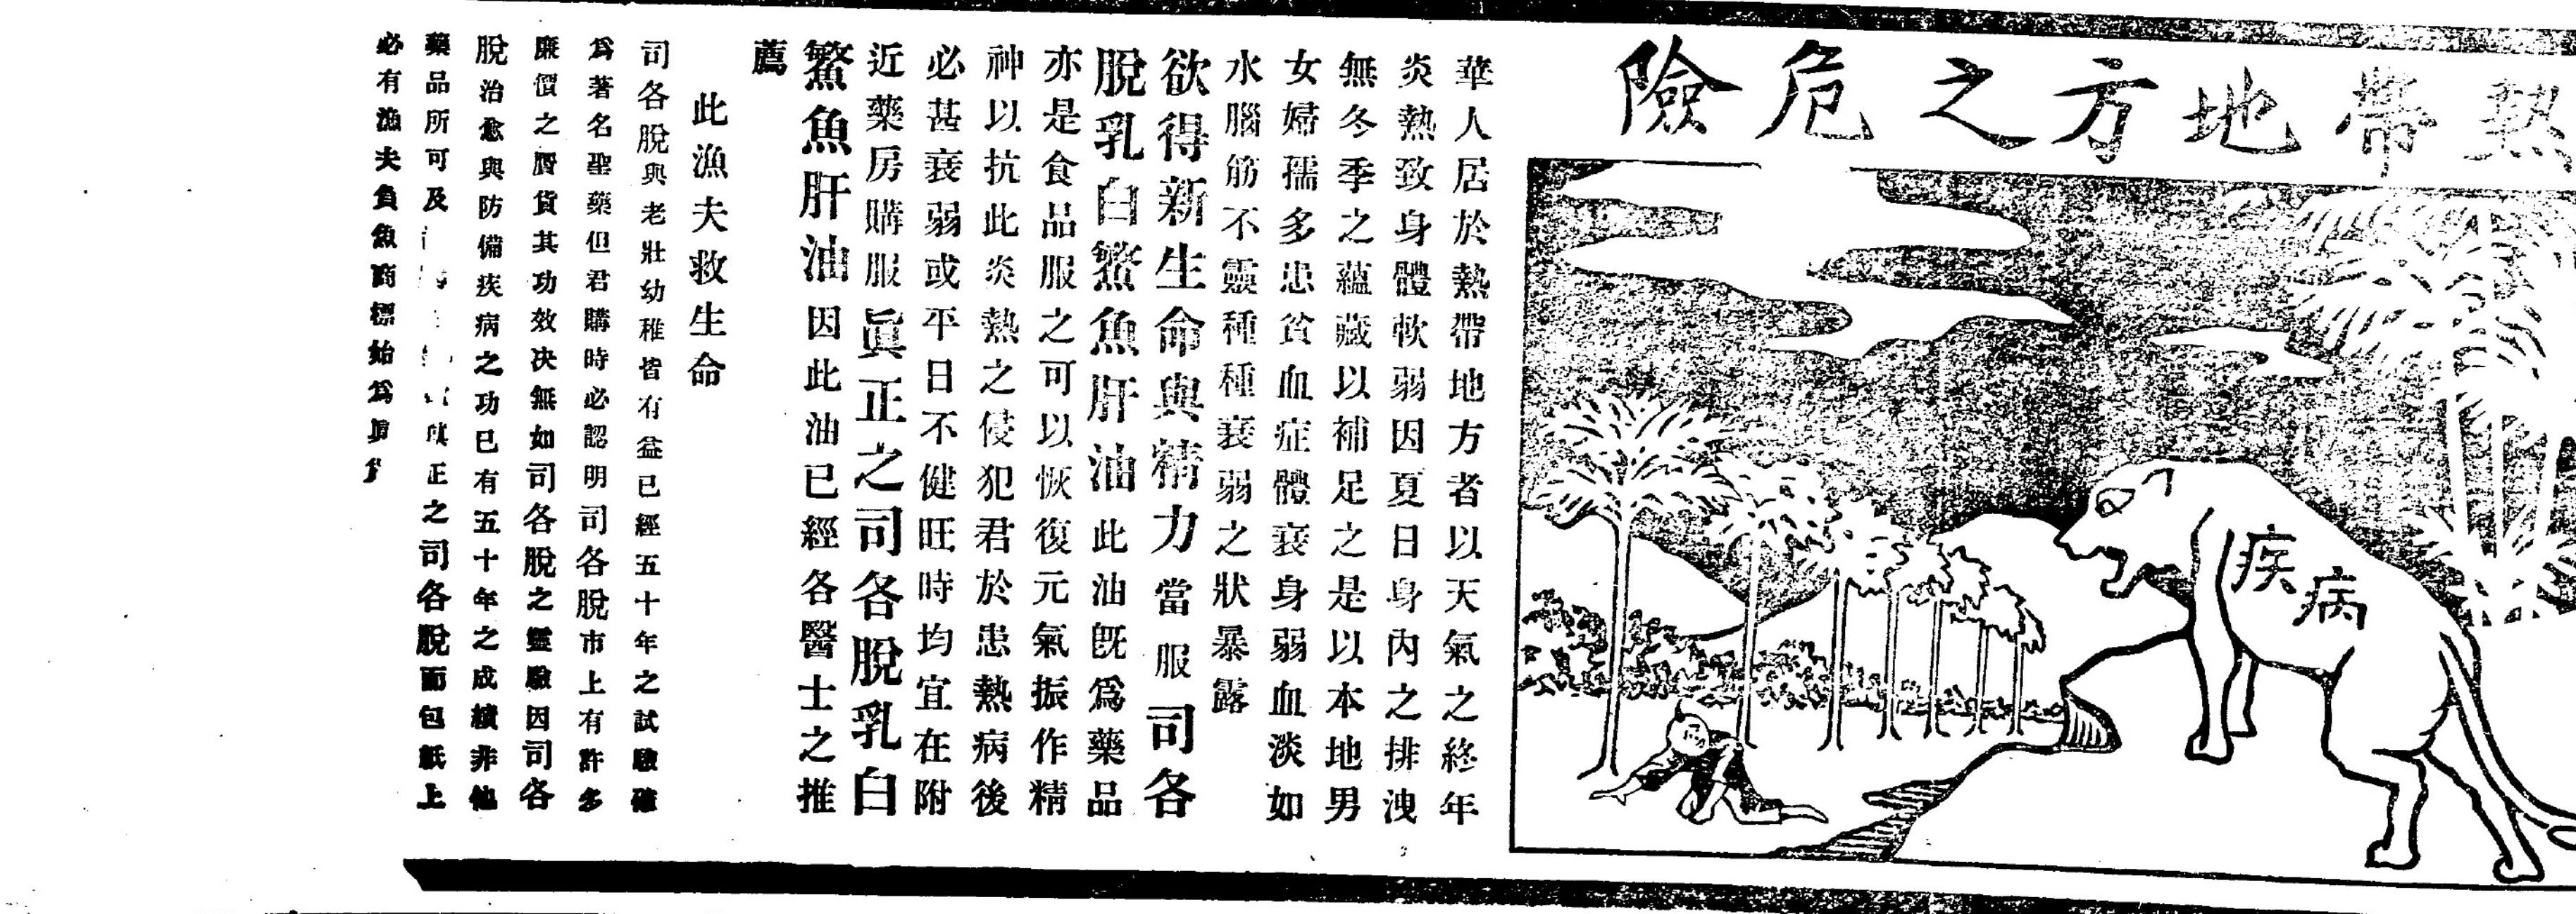 熱帶地方之危險
疾病
華人居於熱帶地方者以天氣之終年
炎熱致身體軟弱因夏日身內之排洩
無冬季之蘊藏以補足之是以本地男
女婦孺多患貧血症體衰身弱血淡如
水腦筋不靈種種衰弱之狀暴露
欲得新生命與精力當服司各
脫乳白鰵魚肝油此油旣爲藥品
亦是食品服之可以恢復元氣振作精
神以抗此炎熱之侵犯君於患熱病後
必甚衰弱或平日不健旺時均宜在附
近藥房購服眞正之司各脫乳白
鰵魚肝油因此油已經各醫士之推
薦
此漁夫救生命
司各脫與老壯幼稚皆有益已經五十年之試驗確
爲著名聖藥但君購時必認明司各脫市上有許多
廉價之贋貨其功效决無如司各脫之靈驗因司各
脫治愈與防備疾病之功已有五十年之成績非他
藥品所可及正之司各脫面包紙上
必有漁夫負魚商標始爲